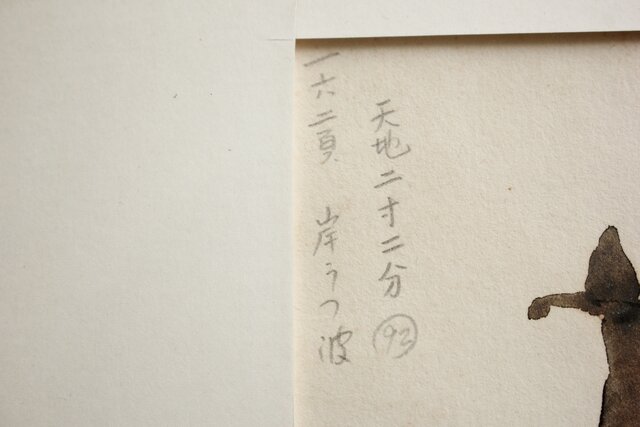 天地二寸二分 93
一六二頁 岸うつ波